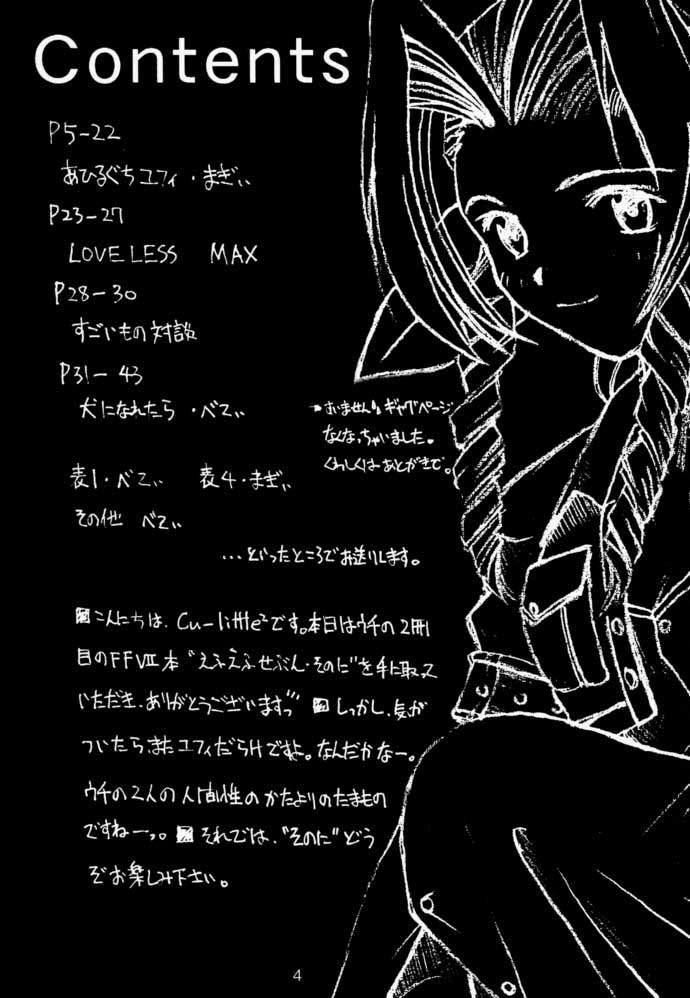 Contents
P5-22
あひるぐちユフィ・まぎぃ
P23-27
LOVELESS MAX
P28-30
すごいもの対談
P31-43
犬になれたら・べてぃ
すいませんギャグページ
なくなっちゃいました。
くわしくはあとがきで。
表1・べてぃ 表4・まぎぃ
その他 べてぃ
…といったところでお送りします。
こんにちは、Cu-little²です。本日はウチの2冊
目のFFVII本“えふえふせぶん・そのに”を手に取って
いただき、ありがとうございますっ しっかし、気が
ついたらまたユフィだらけですよ。なんだかなー。
ウチの2人の人間性のかたよりのたまもの
ですねーっ。 それでは、“そのに”どう
ぞお楽しみ下さい。
4